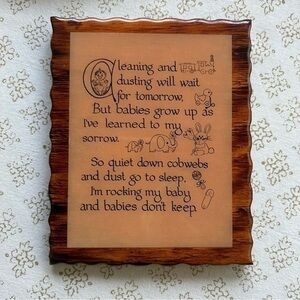 Cleaning and
dusting will wait
for tomorrow,
But babies grow up as
I've learned to my
sorrow.
So quiet down cobwebs
and dust go to sleep,
I'm rocking my baby
and babies don't keep.